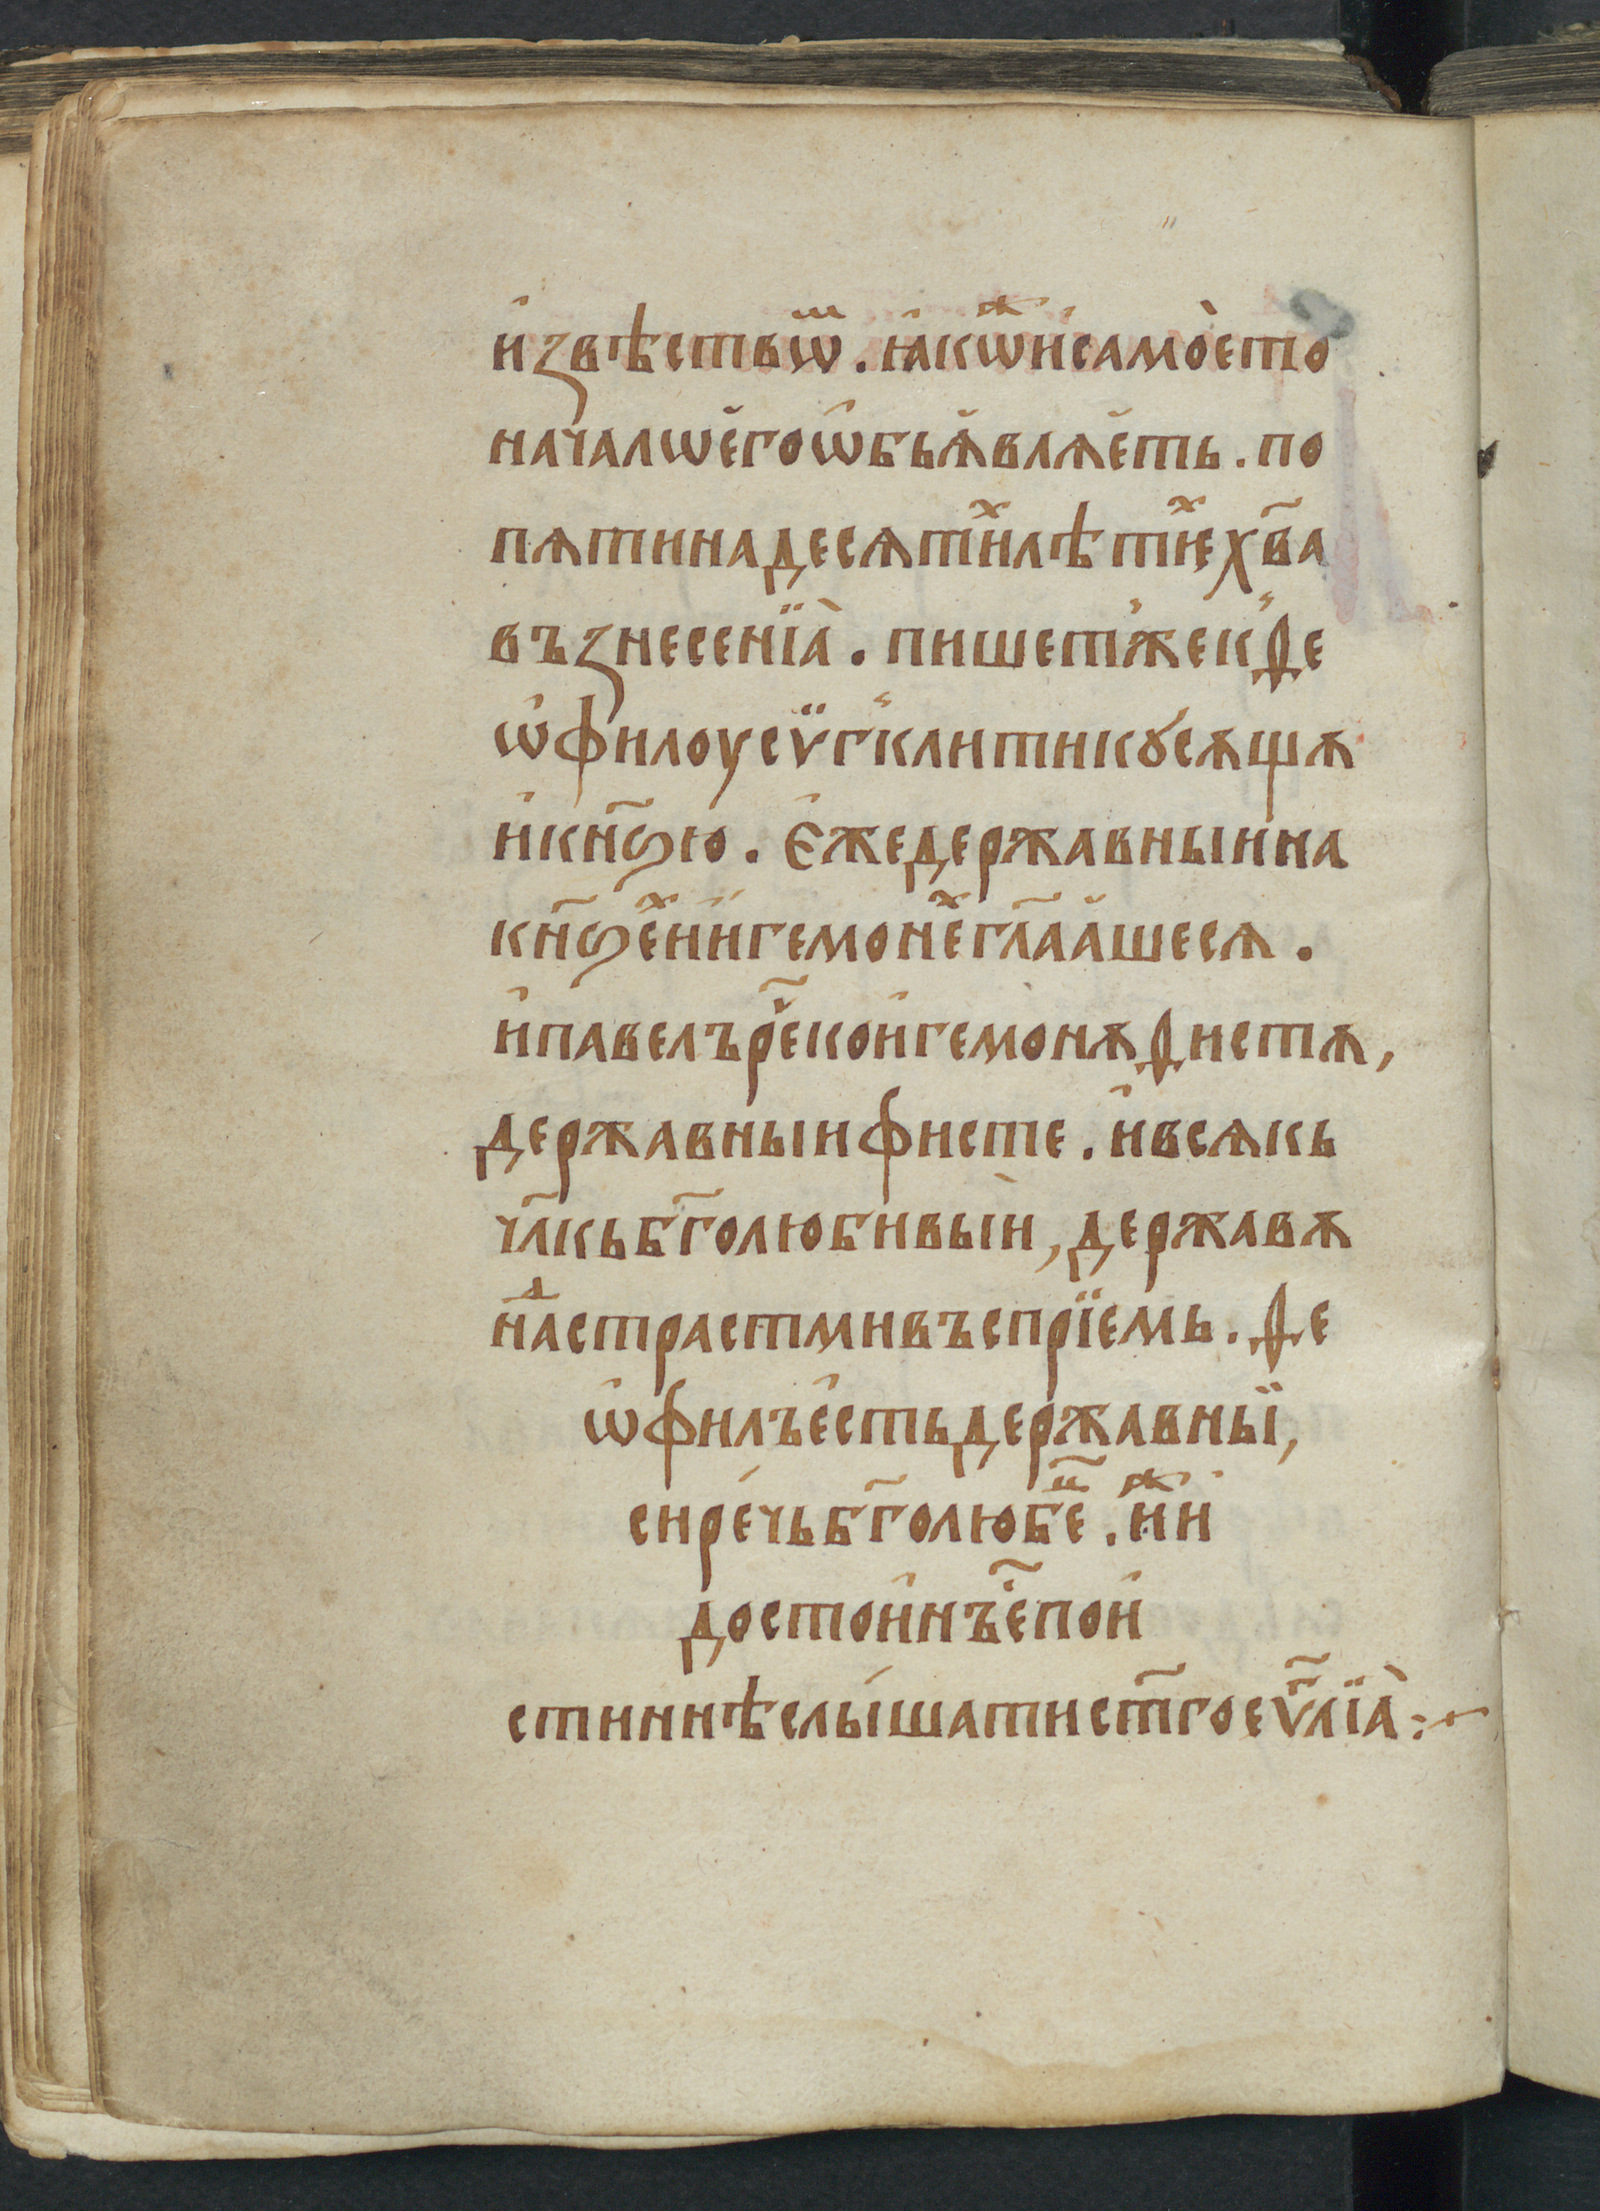 и҆звѣствꙋѿ . ꙗ҆кѡⷤи҆самоѐто
началѡе҆гоѡ҆бьꙗ҆влѧ҆еть . по
пѧтинадесѧтиⷯлѣтиⷯехв҃а
възнесенїа̀ . пишетжекѲе
ѡ҆филоусѵ̈гклитикꙋсѫщѫ
и҆кн҃ѕю . є҆жедержавныина
кн҃ѕеⷯи҆и҆гемонеⷯгл҃аа҆шеесѧ .
и҆павелъре҃кои҆гемонѫѲистѫ,
державныифисте . и҆всѧкь
чл҃кьбг҃олюбивыи , державѫ
наⷣстрастмивъспрїемь . Ѳе
ѡ҆филъе҆стьдержавныї ,
сирѣчьбг҃олюбеⷰ҃ . и҆иⷤ
достои҆нъе҃пои҆
стиннѣслышатист҃гоеѵ҃лїа̀ :~